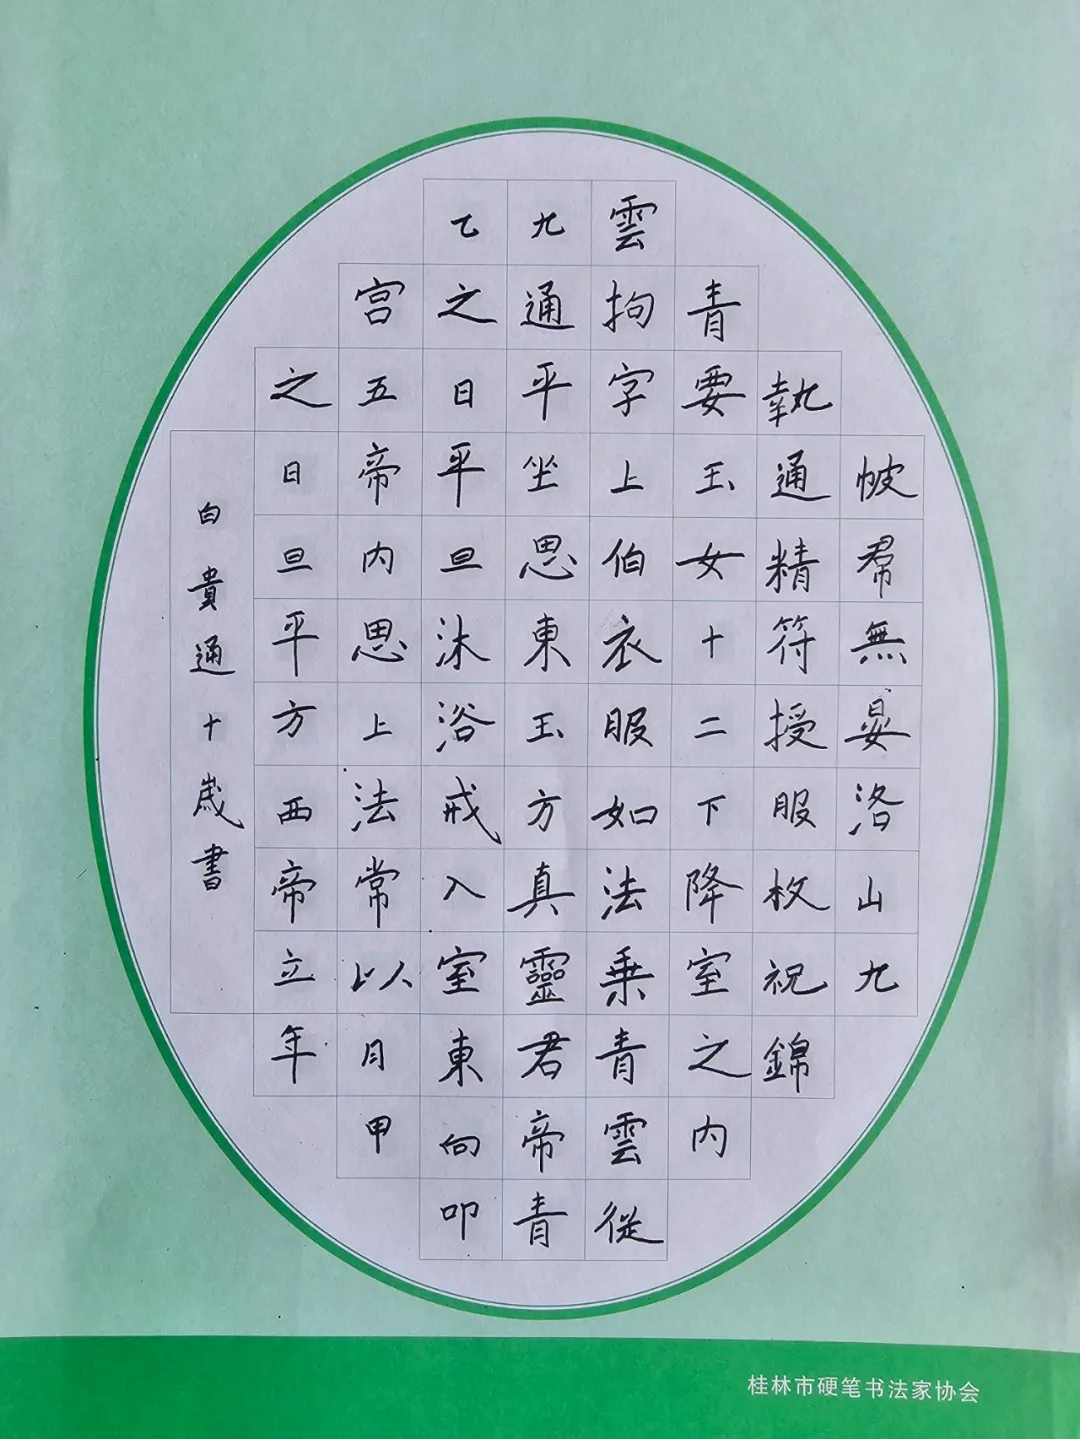 帔帬無晏洛山九
執通精符授服枚祝錦
青要玉女十二下降室之内
雲拘字上伯衣服如法乗青雲從
九通平坐思東玉方真靈君帝青
乙之日平旦沐浴戒入室東向叩
宮五帝内思上法常以月甲
之日旦平方西帝立年
白貴通十歲書
桂林市硬笔书法家协会